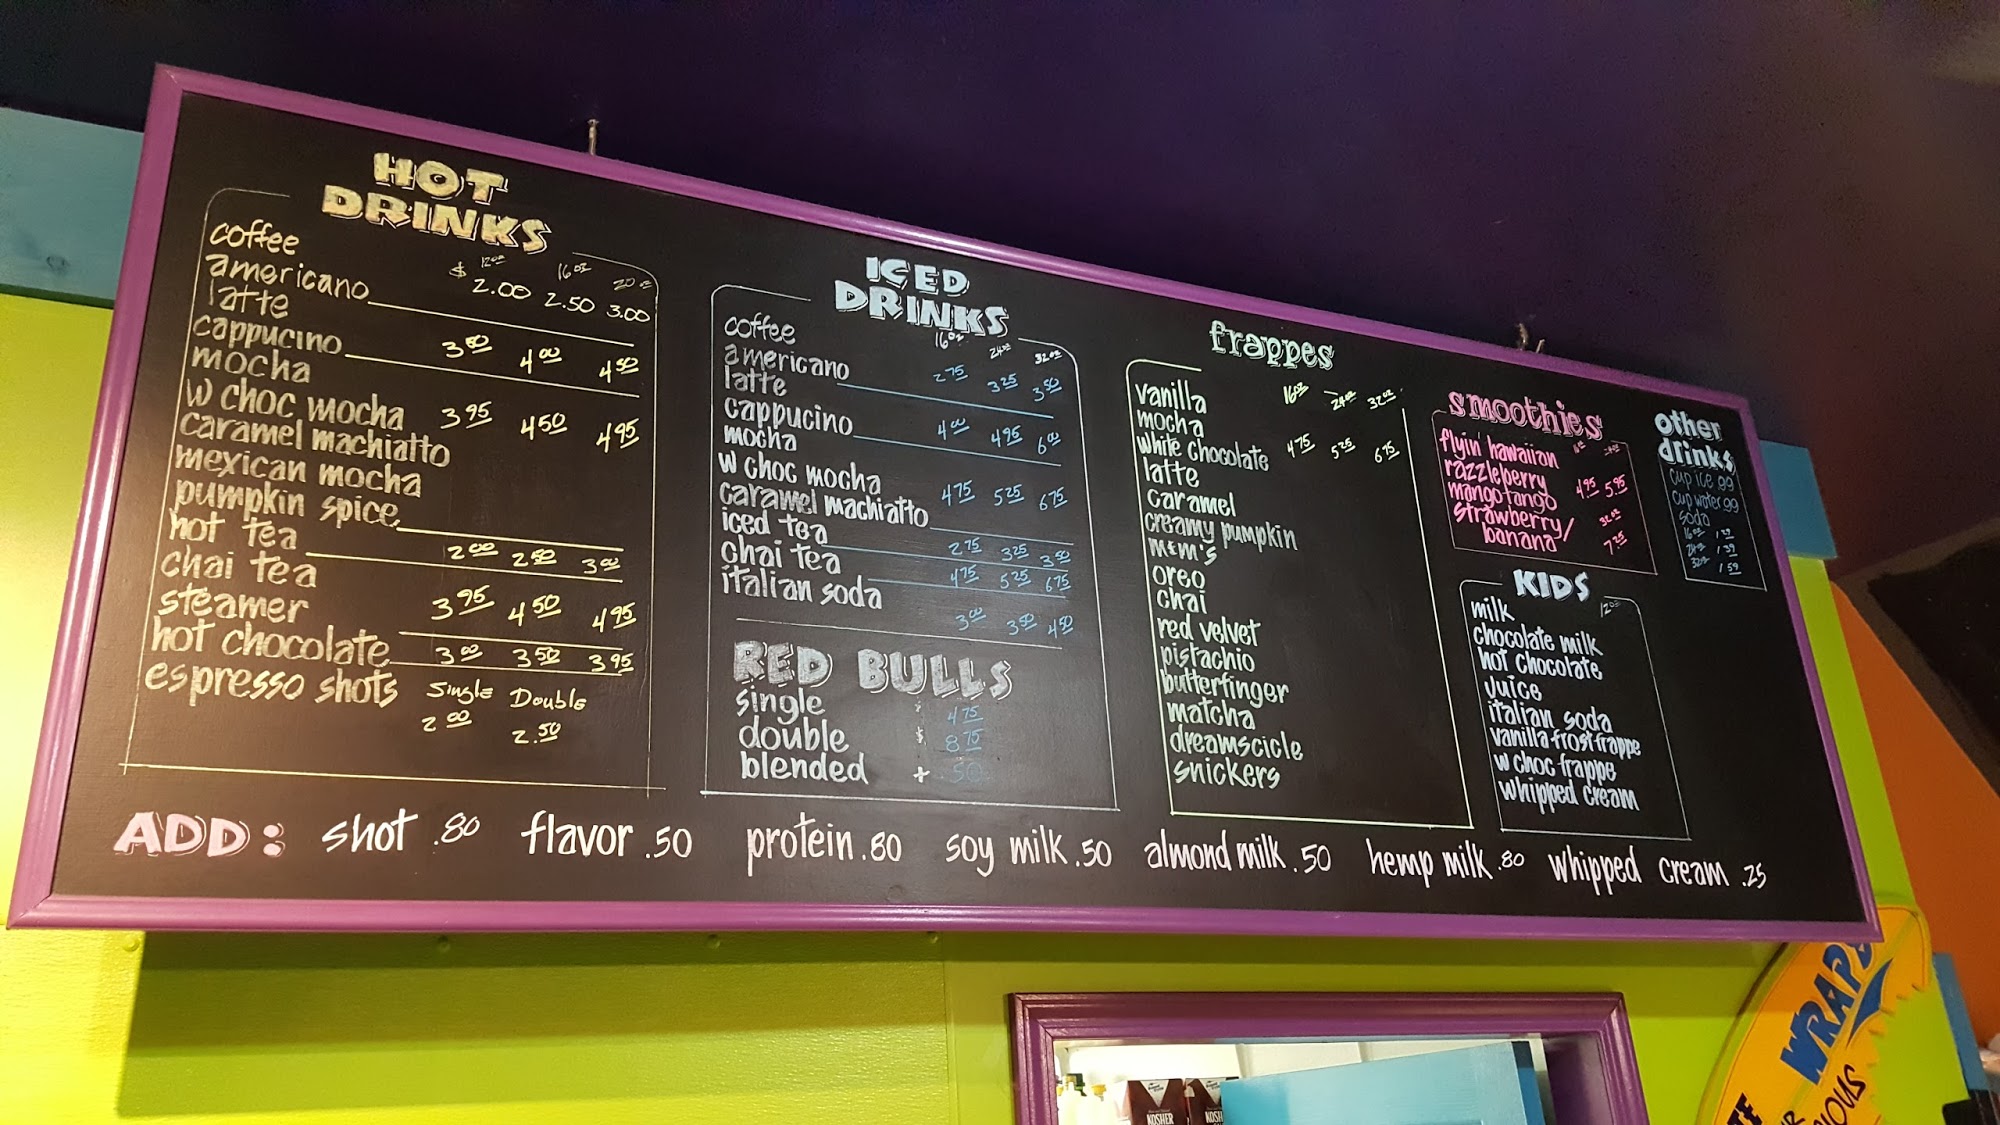 HOT
DRINKS
12oz 16oz 20oz
coffee $ 2.00 2.50 3.00
americano
latte
cappucino 3 50 4 00 4 50
mocha
w choc mocha 3 95 4 50 4 95
caramel machiatto
mexican mocha
pumpkin spice
hot tea 2 00 2 50 3 00
chai tea
steamer 3 95 4 50 4 95
hot chocolate 3 00 3 50 3 95
espresso shots Single Double
2 00 2.50
ICED
DRINKS
16oz 24oz 32oz
coffee
americano 2 75 3 25 3 50
latte
cappucino 4 00 4 95 6 00
mocha
w choc mocha
caramel machiatto 4 75 5 25 6 75
iced tea 2 75 3 25 3 50
chai tea 4 75 5 25 6 75
italian soda 3 00 3 50 4 50
RED BULLS
single $ 4 75
double $ 8 75
blended + 50
frappes
vanilla 16oz 24oz 32oz
mocha
white chocolate 4 75 5 25 6 75
latte
caramel
creamy pumpkin
m&m's
oreo
chai
red velvet
pistachio
butterfinger
matcha
dreamscicle
snickers
smoothies
flyin' hawaiian
razzleberry
mangotango 4 95 5 95
strawberry/ 32oz
banana 7 25
KIDS
milk 12oz
chocolate milk
hot chocolate
juice
italian soda
vanilla frost frappe
w choc frappe
whipped cream
other
drinks
cup ice 99
cup water 99
soda
16oz
24oz 1 39
32oz 1 59
ADD: shot .80 flavor .50 protein .80 soy milk .50 almond milk .50 hemp milk .80 whipped cream .25
WRAPS
KOSHER